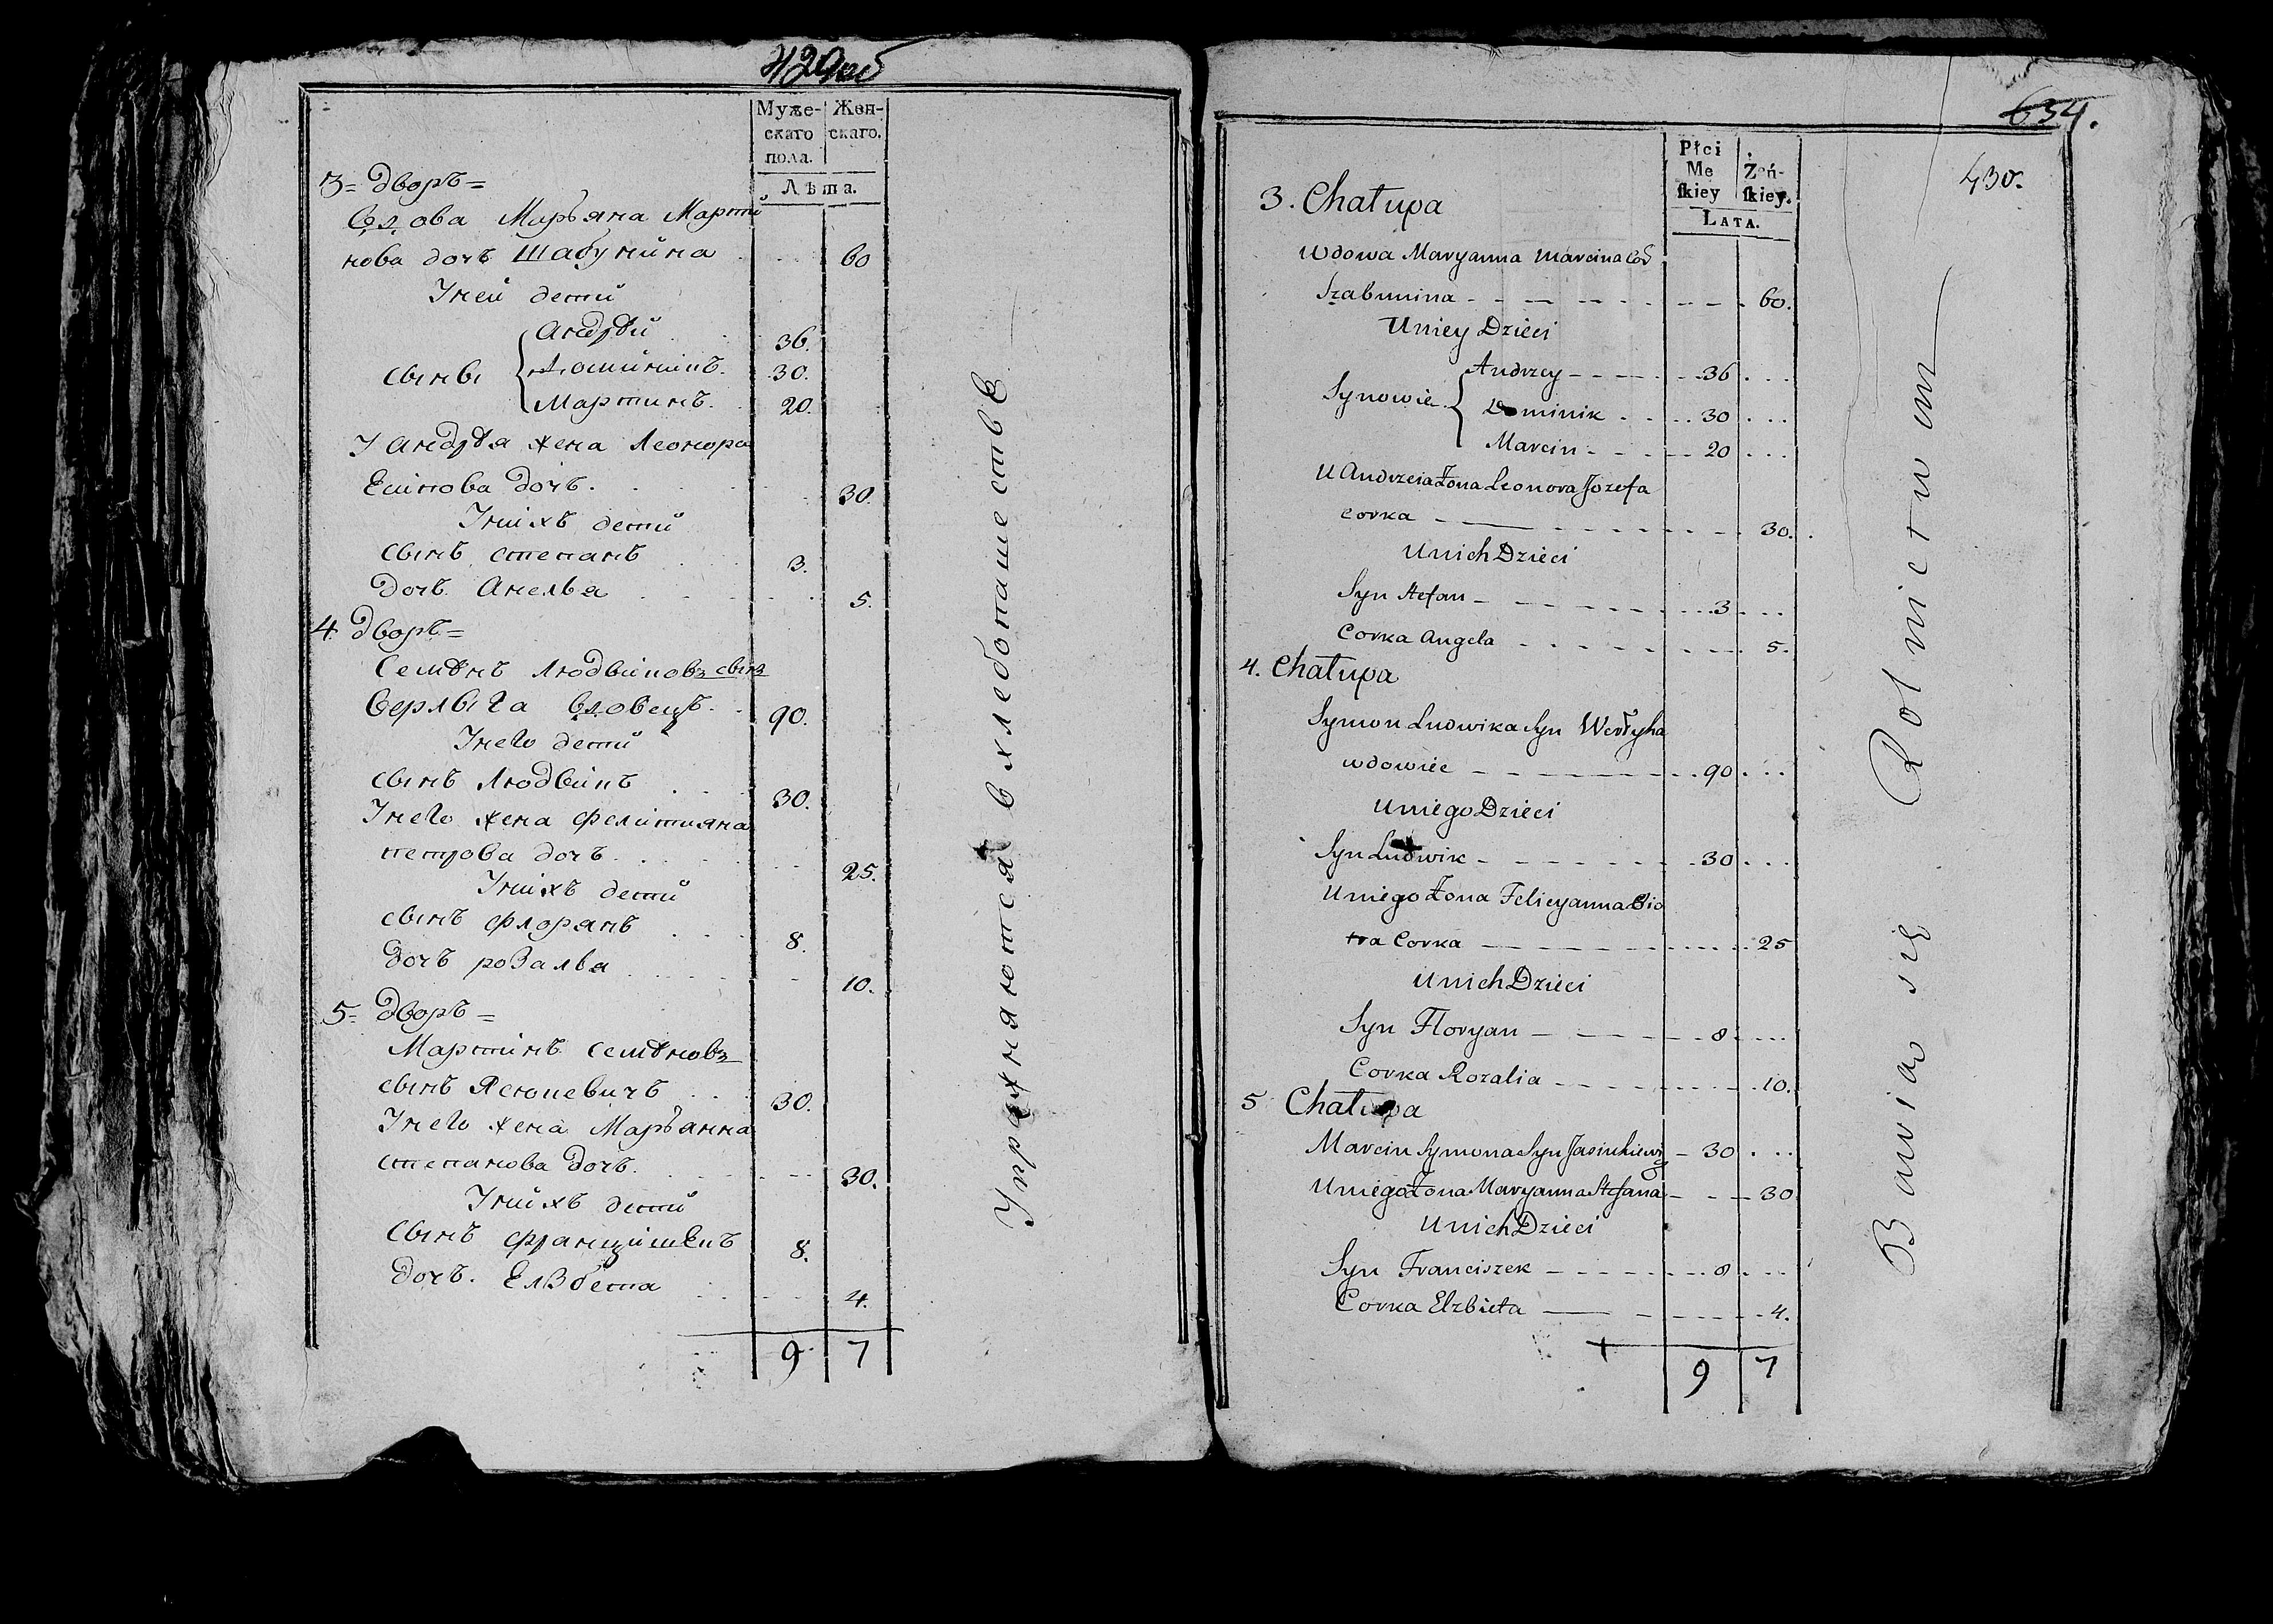 429 об
Муже-
скаго
пола.
Жен-
скаго.
Лѣта.
3 = дворъ =
Вдова Марьяна Марти
нова дочь Шабунина 60
У ней дети
сыны
Андрѣй 36.
Доминикъ. 30.
Мартинъ. 20.
У Андрѣя жена Леонора
Есипова дочь. 30.
У нихъ дети
сынъ степанъ 3.
дочь Анелья 5.
4 дворъ =
Семѣнъ Людвиковъ сынъ
Верлыга вдовецъ. 90.
У него дети
сынъ Людвикъ 30.
У него жена Фелитияна
петрова дочь. 25.
У нихъ дети
сынъ флорянъ 8.
дочь розалья 10.
5 = дворъ =
Мартинъ семѣновъ
сынъ Ясюкевичъ 30.
У него жена Марьянна
степанова дочь. 30.
У нихъ дети
сынъ францишекъ 8.
дочь. Елзбета 4.
9 7
Упражняются в хлебопашестве
634.
430.
Płci
Mę
ſkiey
Żeń-
ſkiey.
LATA.
3. Chałupa
Wdowa Maryanna Marcina Cor
Szabunina 60.
U niey Dzieci
Synowie
Andrzey 36
Dominik 30
Marcin 20
U Andrzeia Żona Leonora Jozefa
corka 30.
U nich Dzieci
Syn Stefan 3
Corka Angela 5.
4. Chałupa
Symon Ludwika Syn Werłyha
wdowiec 90
U niego Dzieci
Syn Ludwik 30
U niego Żona Felicyanna Pio
tra Corka 25
U nich Dzieci
Syn Floryan 8
Corka Rozalia 10.
5 Chałupa
Marcin Symona Syn Jasiukiewicz 30
U niego Żona Maryanna Stefana 30
U nich Dzieci
Syn Franciszek 8
Corka Elzbieta 4.
9 7
Bawią się Rolnictwem